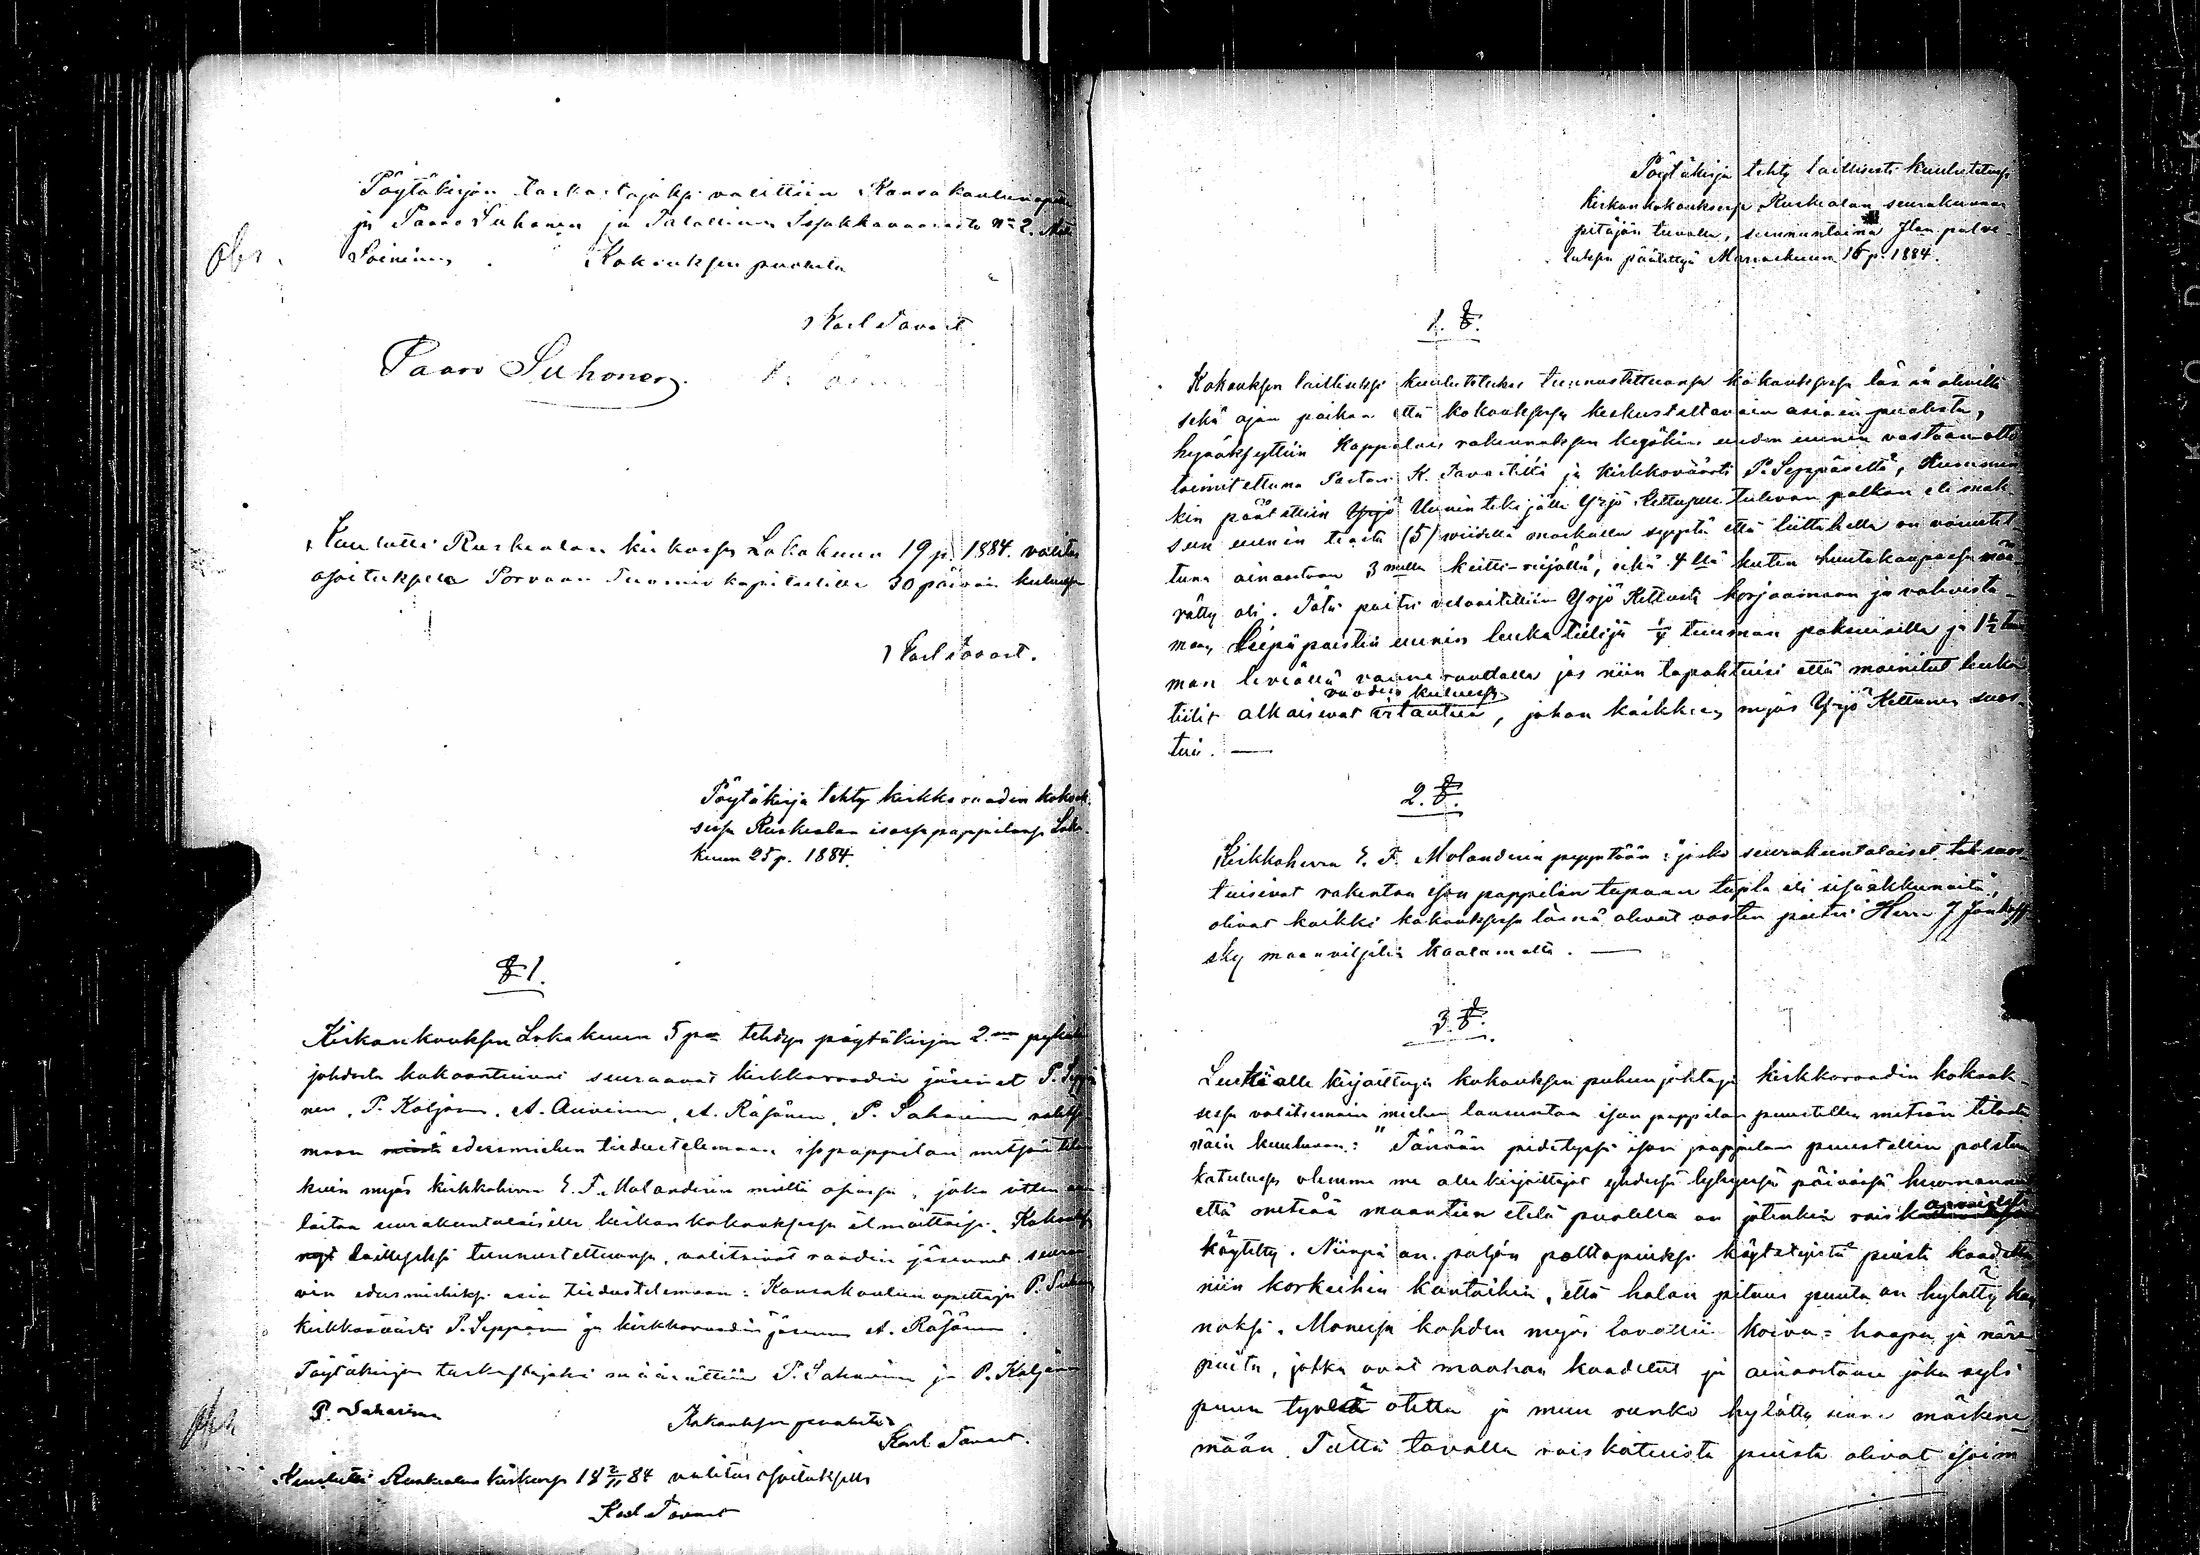 Pöytäkirjan tarkastajaksi valittiin Kansakoulun
ja Paavo Suhonen ja Talallinen Issakkavaarasta No 2.
Soininen. Kokouksen puolesta
obs.
Karl Tavast
Paavo Suhonen.
Luettu Ruskealan kirkossa Lokakuun 19 p. 1884. valitus
osoituksella Porvoon Tuomio kapitulille 30 päivän kuluessa
Karl Tavast.
Pöytäkirja tehty kirkkoraadin kokouk-
sessa Ruskealan isossa pappilassa Loka-
kuun 25 p. 1884.
§ 1.
Kirkonkouksen Lokakuun 5 pnä tehdyn pöytäkirjan 2.
johdosta kokoontuivat seuraavat kirkkoraadin jäsenet P. Seppä
nen, P. Koljonen, A. Auvinen, A. Räsänen, P. Saharinen
maan edusmiehen tiedustelemaan isopappilan metsän
kuin myös kirkkoherra E. F. Molanderin mieltä asiassa, joka sitten
laitaan seurakuntalaisille kirkon kokouksessa ilmoittaisi. Kokous
nyt lailliseksi tunnustettuansa, valitsivat raadin jäsenet seuraa
vin edusmiehiksi asia tiedustelemaan: Kansakoulun opettaja P. Suhonen
kirkkoväärti P. Seppänen ja kirkkoraadin jäsenen A. Räsänen.
Pöytäkirjan tarkastajaksi määrättiin P. Saharinen ja P. Koljonen
P. Saharinen Kokouksen puolesta
Karl Tavast.
Kuulutettu Ruskealan kirkossa 18 2/11 84 valitus osoituksella
Karl Tavast
Pöytäkirja tehty laillisesti kuulutetussa
kirkonkokouksessa Ruskealan seurakunnan
pitäjän tuvalla, sunnuntaina Jlan palve-
luksen päätettyä Marraskuun 16 p. 1884.
1. §.
Kokouksen lailliseksi kuulutetuksi tunnustettuansa kokouksessa läsnä olevilta
sekä ajan paikan että kokouksessa keskusteltavain asiain puolesta,
hyväksyttiin Kappalais rakennuksen kyökin uuden uunin vastaanotto
toimitettuna Pastori K. Tavastilta ja kirkkoväärti P. Seppäseltä, kummin
kin päätettiin Yrjö Uunin tekijälle Yrjö Kettuselle tulevan palkan eli mak
sun uunin teosta (5) viidellä markalla syystä että liettahella on varustet
tuna ainoastaan 3 mella keitti-reijällä, eikä 4 llä kuten huutokaupassa mää
rätty oli. Tätä paitsi velvoitettiin Yrjö Kettusta korjaamaan ja vahvista-
maan leipäpaistin uunin luukatiilijä 1/4 tuuman paksuisella ja 1 1/2 tuu
man leveällä vanne raudalla jos niin tapahtuisi että mainitut luuka
vuoden kuluessa
tiilit alkaisivat irtautua, johon kaikkeen myös Yrjö Kettunen suos-
tui. —
2. §.
Kirkkoherra E. F. Molanderin pyyntöön: "josko seurakuntalaiset suos-
tuisivat rakentaa ison pappilan tupaan tupla eli sisäakkunoita",
olivat kaikki kokouksessa läsnä olevat vasten paitsi Herra J. Jankoff
sky maanviljelijä Kaalamolta. —
3. §.
Luettu alle kirjoittaja kokouksen puheenjohtaja kirkkoraadin kokouk-
sessa valitsemain miehen lausuntoa ison pappilan puustellin metsän tilasta
näin kuuluvan: "Tänään pidetyssä ison pappilan puustellin polston
katselussa olemme me alle kirjoittajat yhdessä lyhyessä päivässä huomanneet
että metsää maantien etelä puolella on jotenkin raiskaavaisesti
käytetty. Niinpä on paljon polttopuiksi käytetyistä puista kaadettu
niin korkeihin kantoihin, että halon pituus puuta on hylätty kan
noksi. Monessa kohden myös lavallii koivu- haapa ja näre
puita, jotka ovat maahan kaadetut ja ainoastaan joku syli
puun tyveä otettu ja muu runko hylätty sinne märkene
mään. Tällä tavalla raiskatuista puista olivat isoim